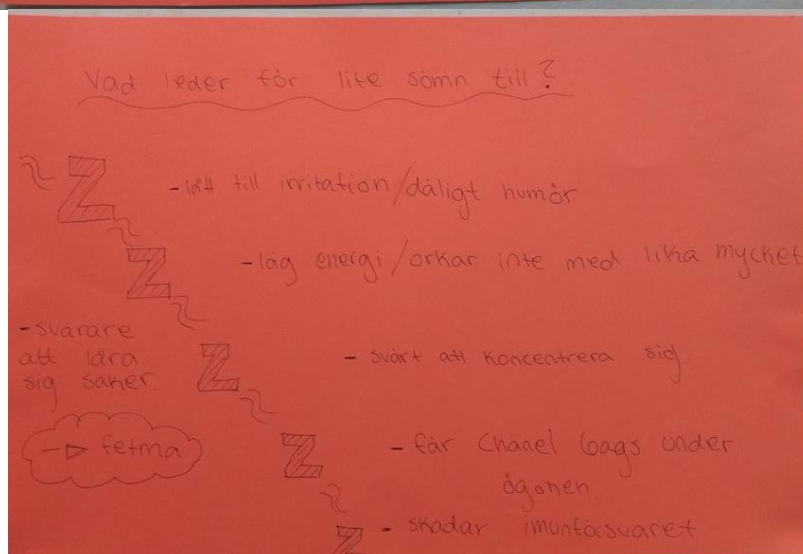 Vad leder för lite sömn till?
Z
- lätt till irritation/dåligt humör
Z
- låg energi/orkar inte med lika mycket
- svårare
att lära
sig saker.
Z
- svårt att koncentrera sig.
-▷ fetma
Z
- får Chanel bags under
ögonen
Z
- skadar imunförsvaret